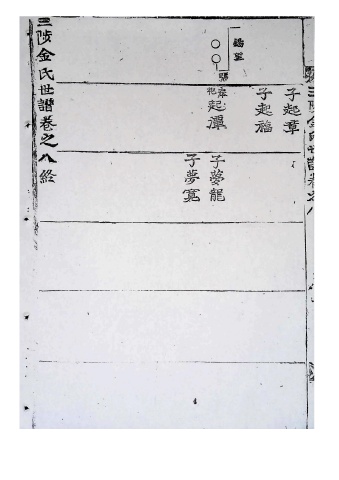 三陟金氏世譜卷之八
子起章
子起福
起潭
子夢龍
子夢寬
三陟金氏世譜卷之八終